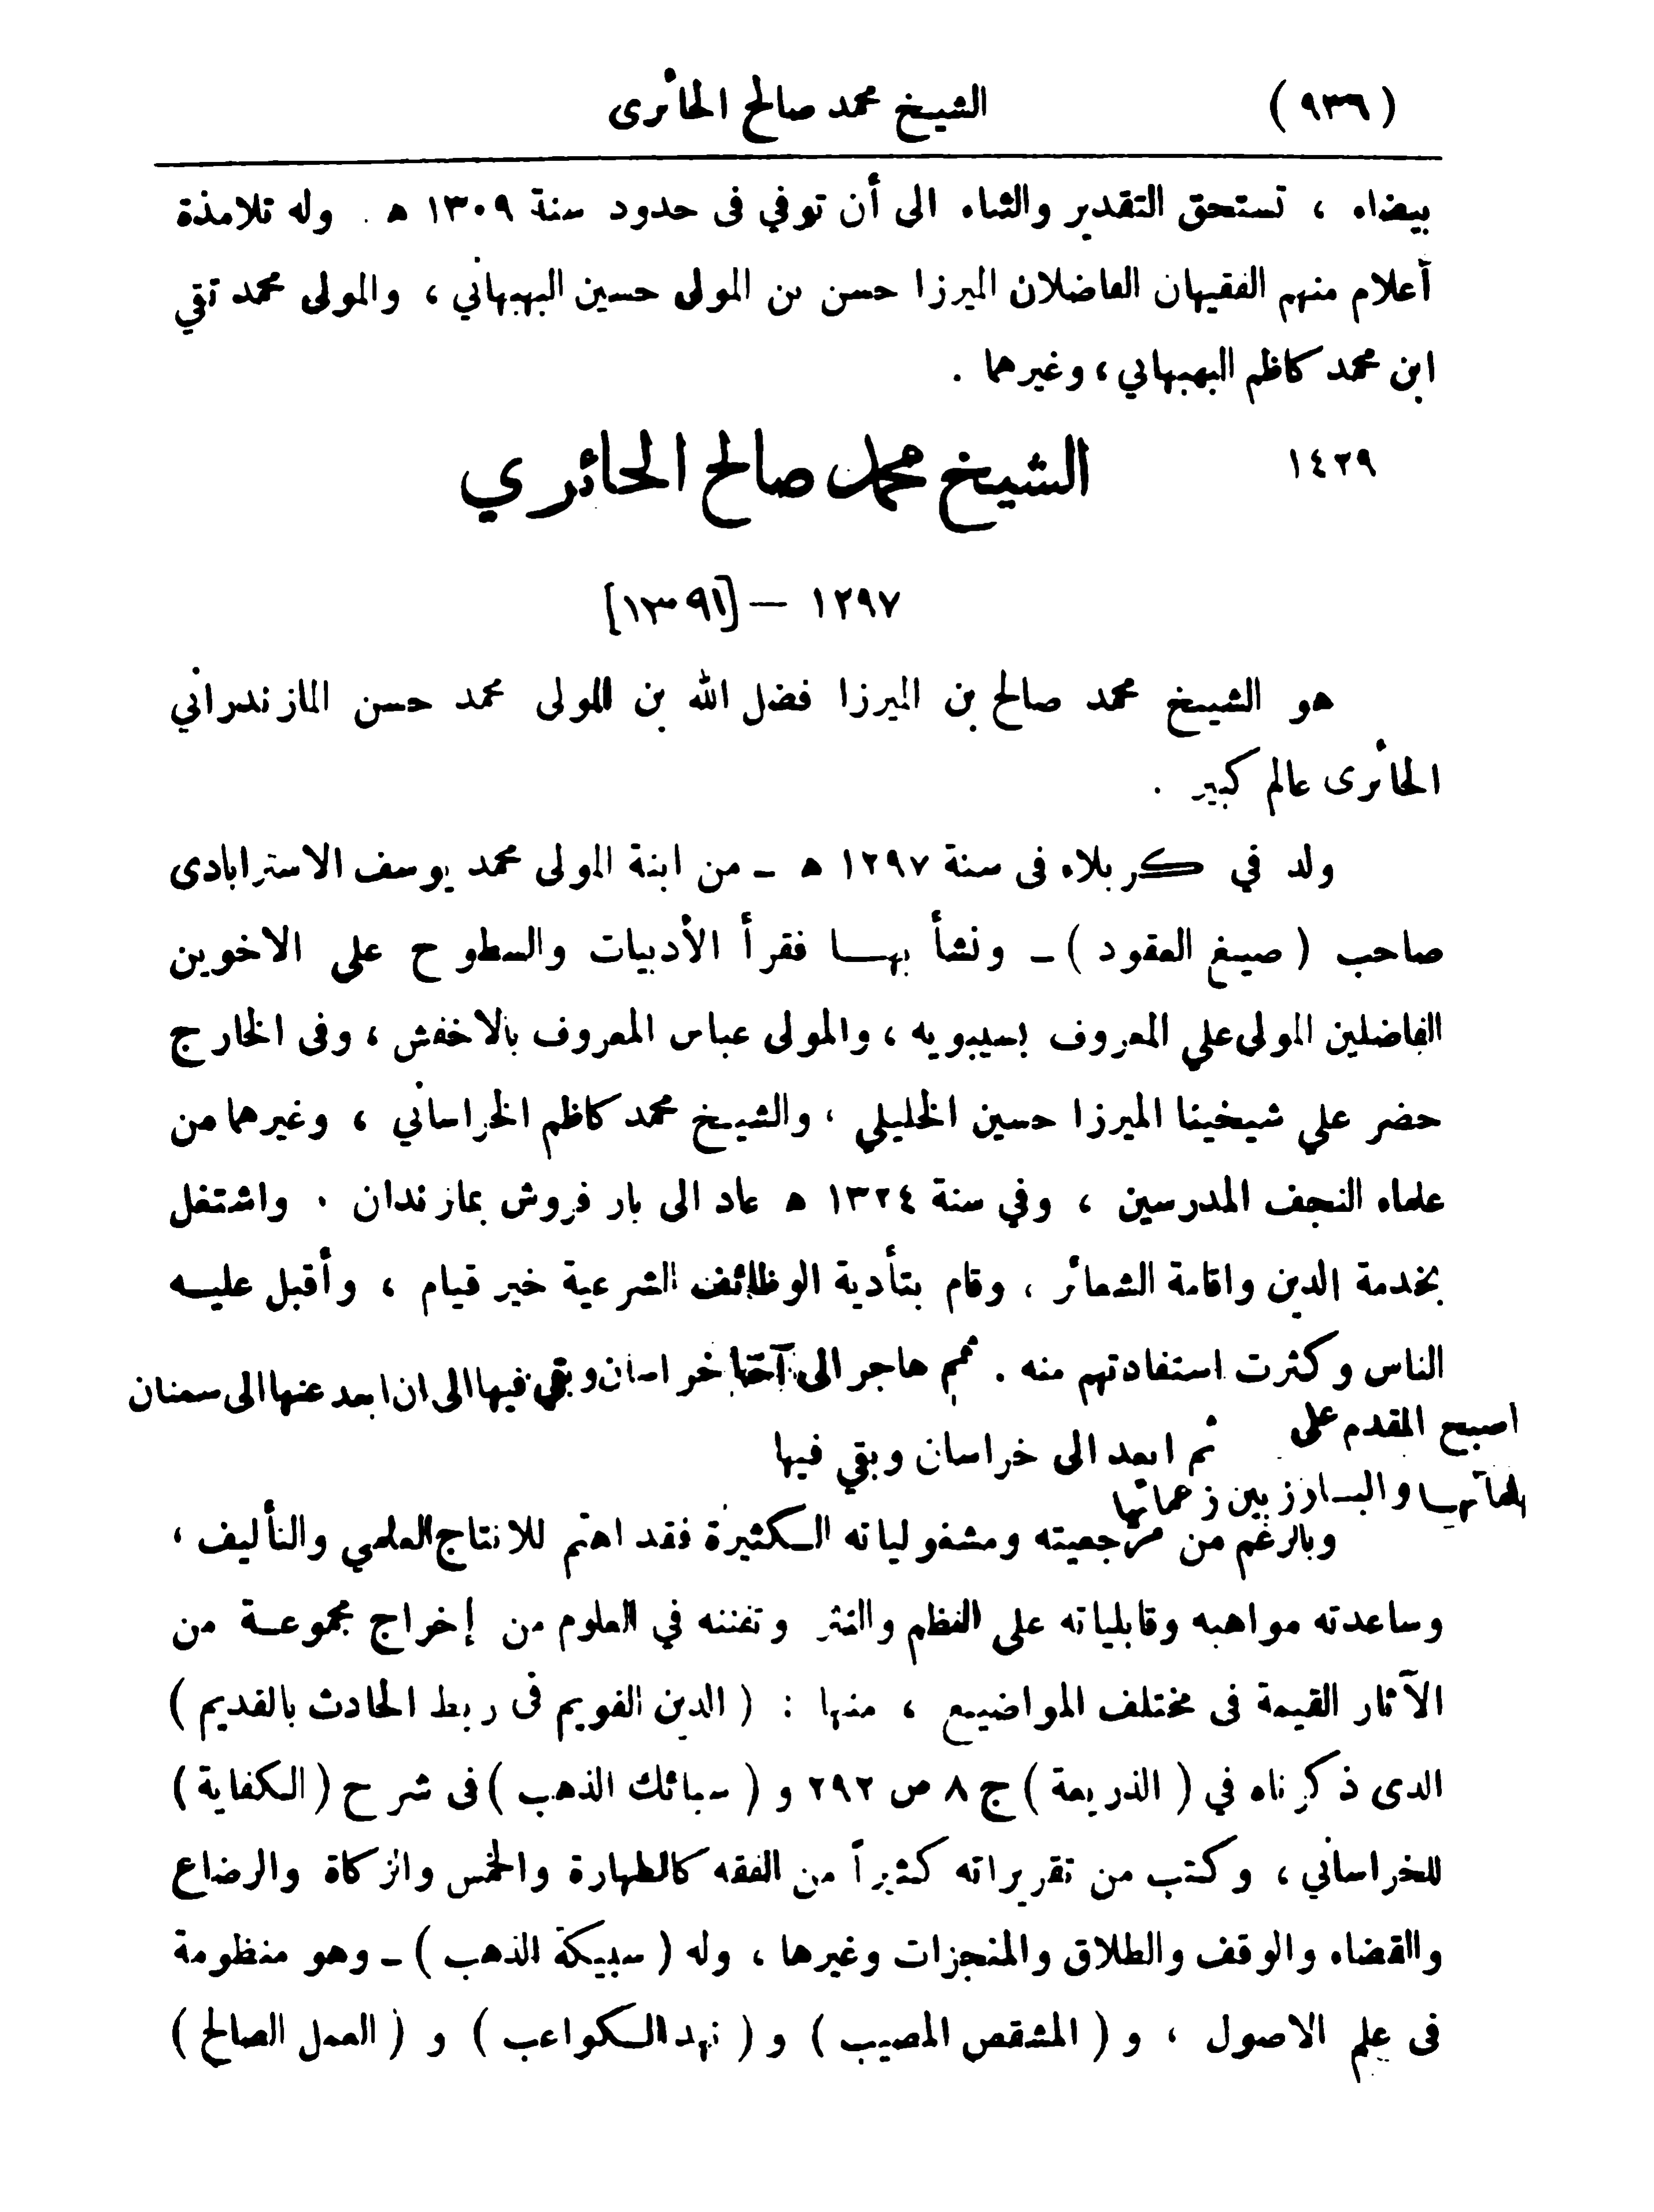 ( ٩٣٦ ) الشيخ محمد صالح الحائرى
بيضاء ، تستحق التقدير والثناء الى أن توفي فى حدود سنة ١٣٠٩ ه . وله تلامذة
أعلام منهم الفقيهان الفاضلان الميرزا حسن بن المولى حسين البهبهاني ، والمولى محمد تقي
ابن محمد كاظم البهبهاني ، وغيرهما .
١٤٢٩ الشيخ محمد صالح الحائري
١٢٩٧ – [١٣٩١]
هو الشيخ محمد صالح بن الميرزا فضل الله بن المولى محمد حسن المازندراني
الحائرى عالم كبير .
ولد في كربلاء فى سنة ١٢٩٧ ه ـ من ابنة المولى محمد يوسف الاسترابادى
صاحب ( صيغ العقود ) ـ ونشأ بهـا فقرأ الأدبيات والسطوح على الاخوين
الفاضلين المولى علي المعروف بسيبويه ، والمولى عباس المعروف بالاخفش ، وفى الخارج
حضر على شيخينا الميرزا حسين الخليلي ، والشيخ محمد كاظم الخراساني ، وغيرهما من
علماء النجف المدرسين ، وفي سنة ١٣٢٤ ه عاد الى بار فروش بمازندان . واشتغل
بخدمة الدين واقامة الشعائر ، وقام بتأدية الوظائف الشرعية خير قيام ، وأقبل عليـه
الناس وكثرت استفادتهم منه . ثم هاجر الى خراسان وبقي فيها الى ان ابعد عنها الى سمنان
اصبح المقدم على
ثم ابعد الى خراسان وبقي فيها
والبـارز بين زعمائها
وبالرغم من مرجعيته ومشغولياته الـكثيرة فقد اهتم للانتاج العلمي والتأليف ،
وساعدته مواهبه وقابلياته على النظم والنثر وتفننه في العلوم من إخراج مجموعـة من
الآثار القيمة فى مختلف المواضيع ، منها : ( الدين القويم فى ربط الحادث بالقديم )
الذى ذكرناه في ( الذريعة ) ج ٨ ص ٢٩٢ و ( سبائك الذهب ) فى شرح ( الـكفاية )
للخراساني ، وكتب من تقريراته كثيراً من الفقه كالطهارة والخمس والزكاة والرضاع
والقضاء والوقف والطلاق والمنجزات وغيرها ، وله ( سبيكة الذهب ) ـ وهو منظومة
فى علم الاصول ، و ( المشقص المصيب ) و ( نهد الـكواعب ) و ( العمل الصالح )